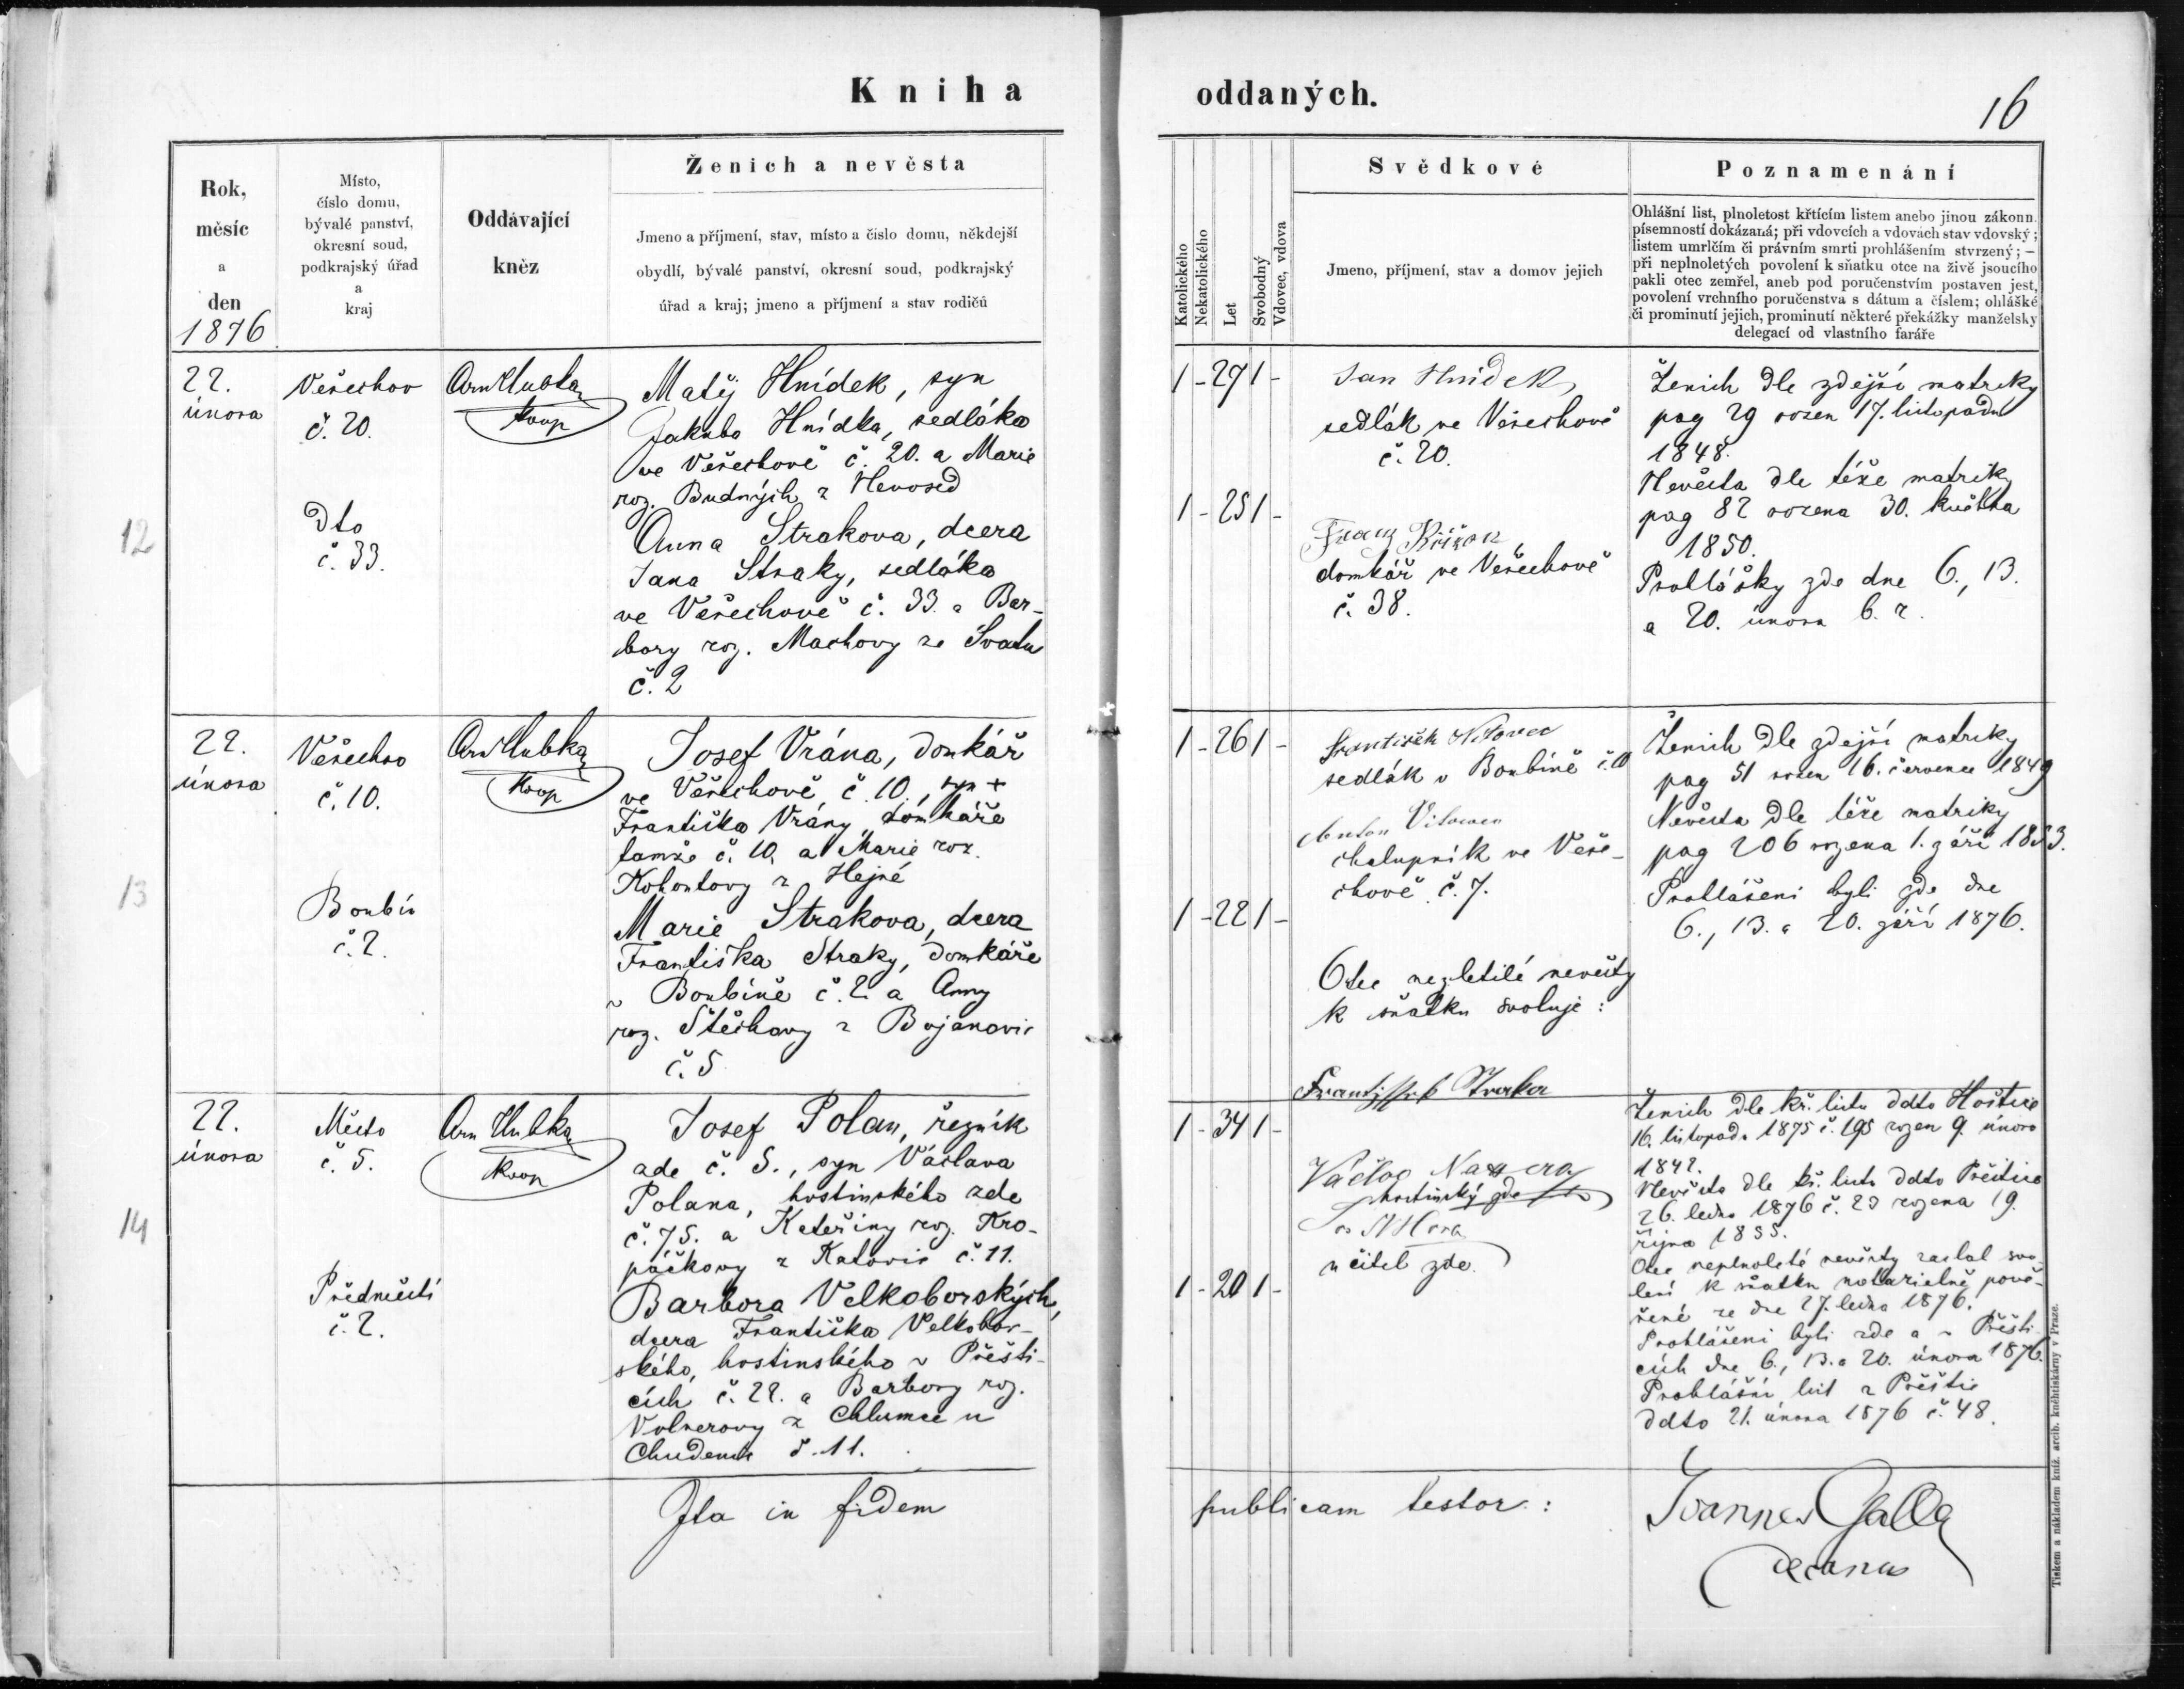 Kniha oddaných.
16
Rok,
měsíc
a
den
1876
Místo,
číslo domu,
bývalé panství,
okresní soud,
podkrajský úřad
a
kraj
Oddávající
kněz
Ženich a nevěsta
Jmeno a příjmení, stav, místo a číslo domu, někdejší
obydlí, bývalé panství, okresní soud, podkrajský
úřad a kraj; jmeno a příjmení a stav rodičů
Katolického
Nekatolického
Let
Svobodný
Vdovec, vdova
Svědkové
Jmeno, příjmení, stav a domov jejich
Poznamenání
Ohlášní list, plnoletost křtícím listem anebo jinou zákonn.
písemností dokázaná; při vdovcích a vdovách stav vdovský;
listem umrlčím či právním smrti prohlášením stvrzený; —
při neplnoletých povolení k sňatku otce na živě jsoucího
pakli otec zemřel, aneb pod poručenstvím postaven jest,
povolení vrchního poručenstva s dátum a číslem; ohlášké
či prominutí jejich, prominutí některé překážky manželsky
delegací od vlastního faráře
12
22.
února
Věřechov
č. 20.
Dto
č. 33.
Arn Hubka
koop
Matěj Hnídek, syn
Jakuba Hnídka, sedláka
ve Věřechově č. 20. a Marie
roz. Budných z Novosed
Anna Strakova, dcera
Jana Straky, sedláka
ve Věřechově č. 33. a Bar-
bory roz. Machovy ze
č. 2
1 - 27 1 -
1 - 25 1 -
Jan Hnídek,
sedlák ve Věřechově
č. 20.
Franz
domkář ve Věřechově
č. 38.
Ženich dle zdejší matriky
pag 29 rozen 17. listopadu
1848.
Nevěsta dle téže matriky
pag 82 rozena 30. května
1850.
Prohlášky zde dne 6., 13.
a 20. února b. r.
13
22.
února
Věřechov
č. 10.
Boubín
č. 2.
Arn Hubka
koop
Josef Vrána, domkář
ve Věřechově č. 10., syn +
Františka Vrány, domkáře
tamže č. 10. a Marie roz.
Kohoutovy z Hejné
Marie Strakova, dcera
Františka Straky, domkáře
v Boubíně č. 2. a Anny
roz. Štěchovy z Bojanovic
č. 5
1 - 26 1 -
1 - 22 1 -
František
sedlák v Boubíně č. 10
Anton
chalupník ve Věře-
chově č. 7.
Otec nezletilé nevěsty
k sňatku svoluje:
Frantisſek Straka
Ženich dle zdejší matriky
pag 51 rozen 16. července 1849
Nevěsta dle téže matriky
pag 206 rozena 1. září 1853.
Prohlášeni byli zde dne
6., 13. a 20. září 1876.
14
22.
února
Město
č. 5.
Předměstí
č. 2.
Arn Hubka
koop
Josef Polan, řezník
zde č. 5., syn Václava
Polana, hostinského zde
č. 75. a Kateřiny roz. Kro-
páčkovy z Katovic č. 11.
Barbora Velkoborských,
dcera Františka Velkobor-
ského, hostinského v Přešti-
cích č. 22. a Barbory roz.
Volnerovy z Chlumce u
Chudenic č. 11.
1 - 34 1 -
1 - 20 1 -
Václav
hostinský zde
učitel zde.
Ženich dle kř. listu ddto Hoštice
16. listopadu 1875 č. 195 rozen 9. února
1842.
Nevěsta dle kř. listu ddto Přeštice
26. ledna 1876 č. 23 rozena 19.
října 1855.
Otec neplnoleté nevěsty zaslal svo-
lení k sňatku notarielně pově-
řené ze dne 27. ledna 1876.
Prohlášeni byli zde a v Přešti-
cích dne 6., 13. a 20. února 1876.
Prohlášní list z Přeštic
ddto 21. února 1876 č. 48.
Ita in fidem publicam testor:
Joannes Galla
decanus
Tiskem a nákladem kníž. arcib. knihtiskárny v Praze.